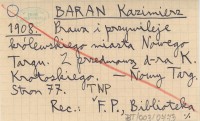 BARAN Kazimierz
1908. Prawa i przywileje
królewskiego miasta Nowego
Targu. Z przedmową d-ra K.
Krotoskiego. — Nowy Targ.
Stron 77. TNP
Rec.: F.P., Biblioteka